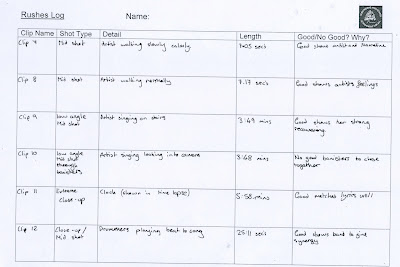 Rushes Log Name:
Clip Name Shot Type Detail Length Good/No Good? Why?
Clip 7 Mid shot Artist walking slowly calmly 7.05 secs Good shows artist and
Clip 8 Mid shot Artist walking normally 7.17 secs Good shows artists feelings
Clip 9 low angle Mid shot Artist singing on stairs 3:49 mins Good shows her strong
Clip 10 low angle mid shot through banisters Artist singing looking into camera 3:68 mins No good banisters to close together
Clip 11 Extreme close-up Clock (shown in time lapse) 5:58 mins Good matches lyrics well
Clip 12 Close-up / Mid shot Drummers playing beat to song 25:11 secs Good shows band to give synergy